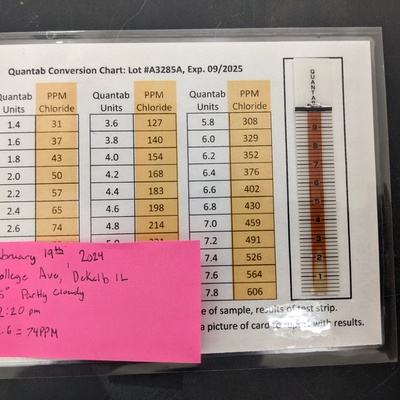 Quantab Conversion Chart: Lot #A3285A, Exp. 09/2025
Quantab Units PPM Chloride Quantab Units PPM Chloride Quantab Units PPM Chloride
1.4 31 3.6 127 5.8 308
1.6 37 3.8 140 6.0 329
1.8 43 4.0 154 6.2 352
2.0 50 4.2 168 6.4 376
2.2 57 4.4 183 6.6 402
2.4 65 4.6 198 6.8 430
2.6 74 4.8 214 7.0 459
7.2 491
7.4 526
7.6 564
7.8 606
QUANTAB
9
8
7
6
5
4
3
2
1
February 19th 2024
College Ave, DeKalb IL
Partly Cloudy
2:20 pm
.6 = 74PPM
e of sample, results of test strip.
a picture of card with results.